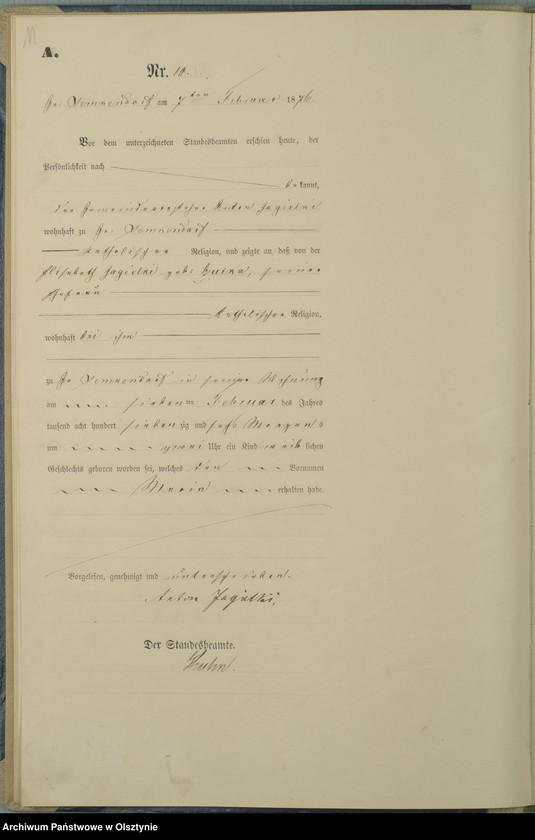 A.
Nr. 10.
Gr. am 7ten Februar 1876.
Vor dem unterzeichneten Standesbeamten erschien heute, der
Persönlichkeit nach
bekannt,
der Gemeindevorsteher Anton Jagielki
wohnhaft zu Gr.
katholischer Religion, und zeigte an, daß von der
Elisabeth Jagielki geb. seiner
Ehefrau
katholischer Religion,
wohnhaft bei ihm
zu Gr. in seiner Wohnung
am sieben ten Februar des Jahres
tausend acht hundert sieben zig und sechs Morgens
um zwei Uhr ein Kind weib lichen
Geschlechts geboren worden sei, welches den Vornamen
Maria erhalten habe.
Vorgelesen, genehmigt und unterschrieben.
Anton Jagielki.
Der Standesbeamte.
Archiwum Państwowe w Olsztynie